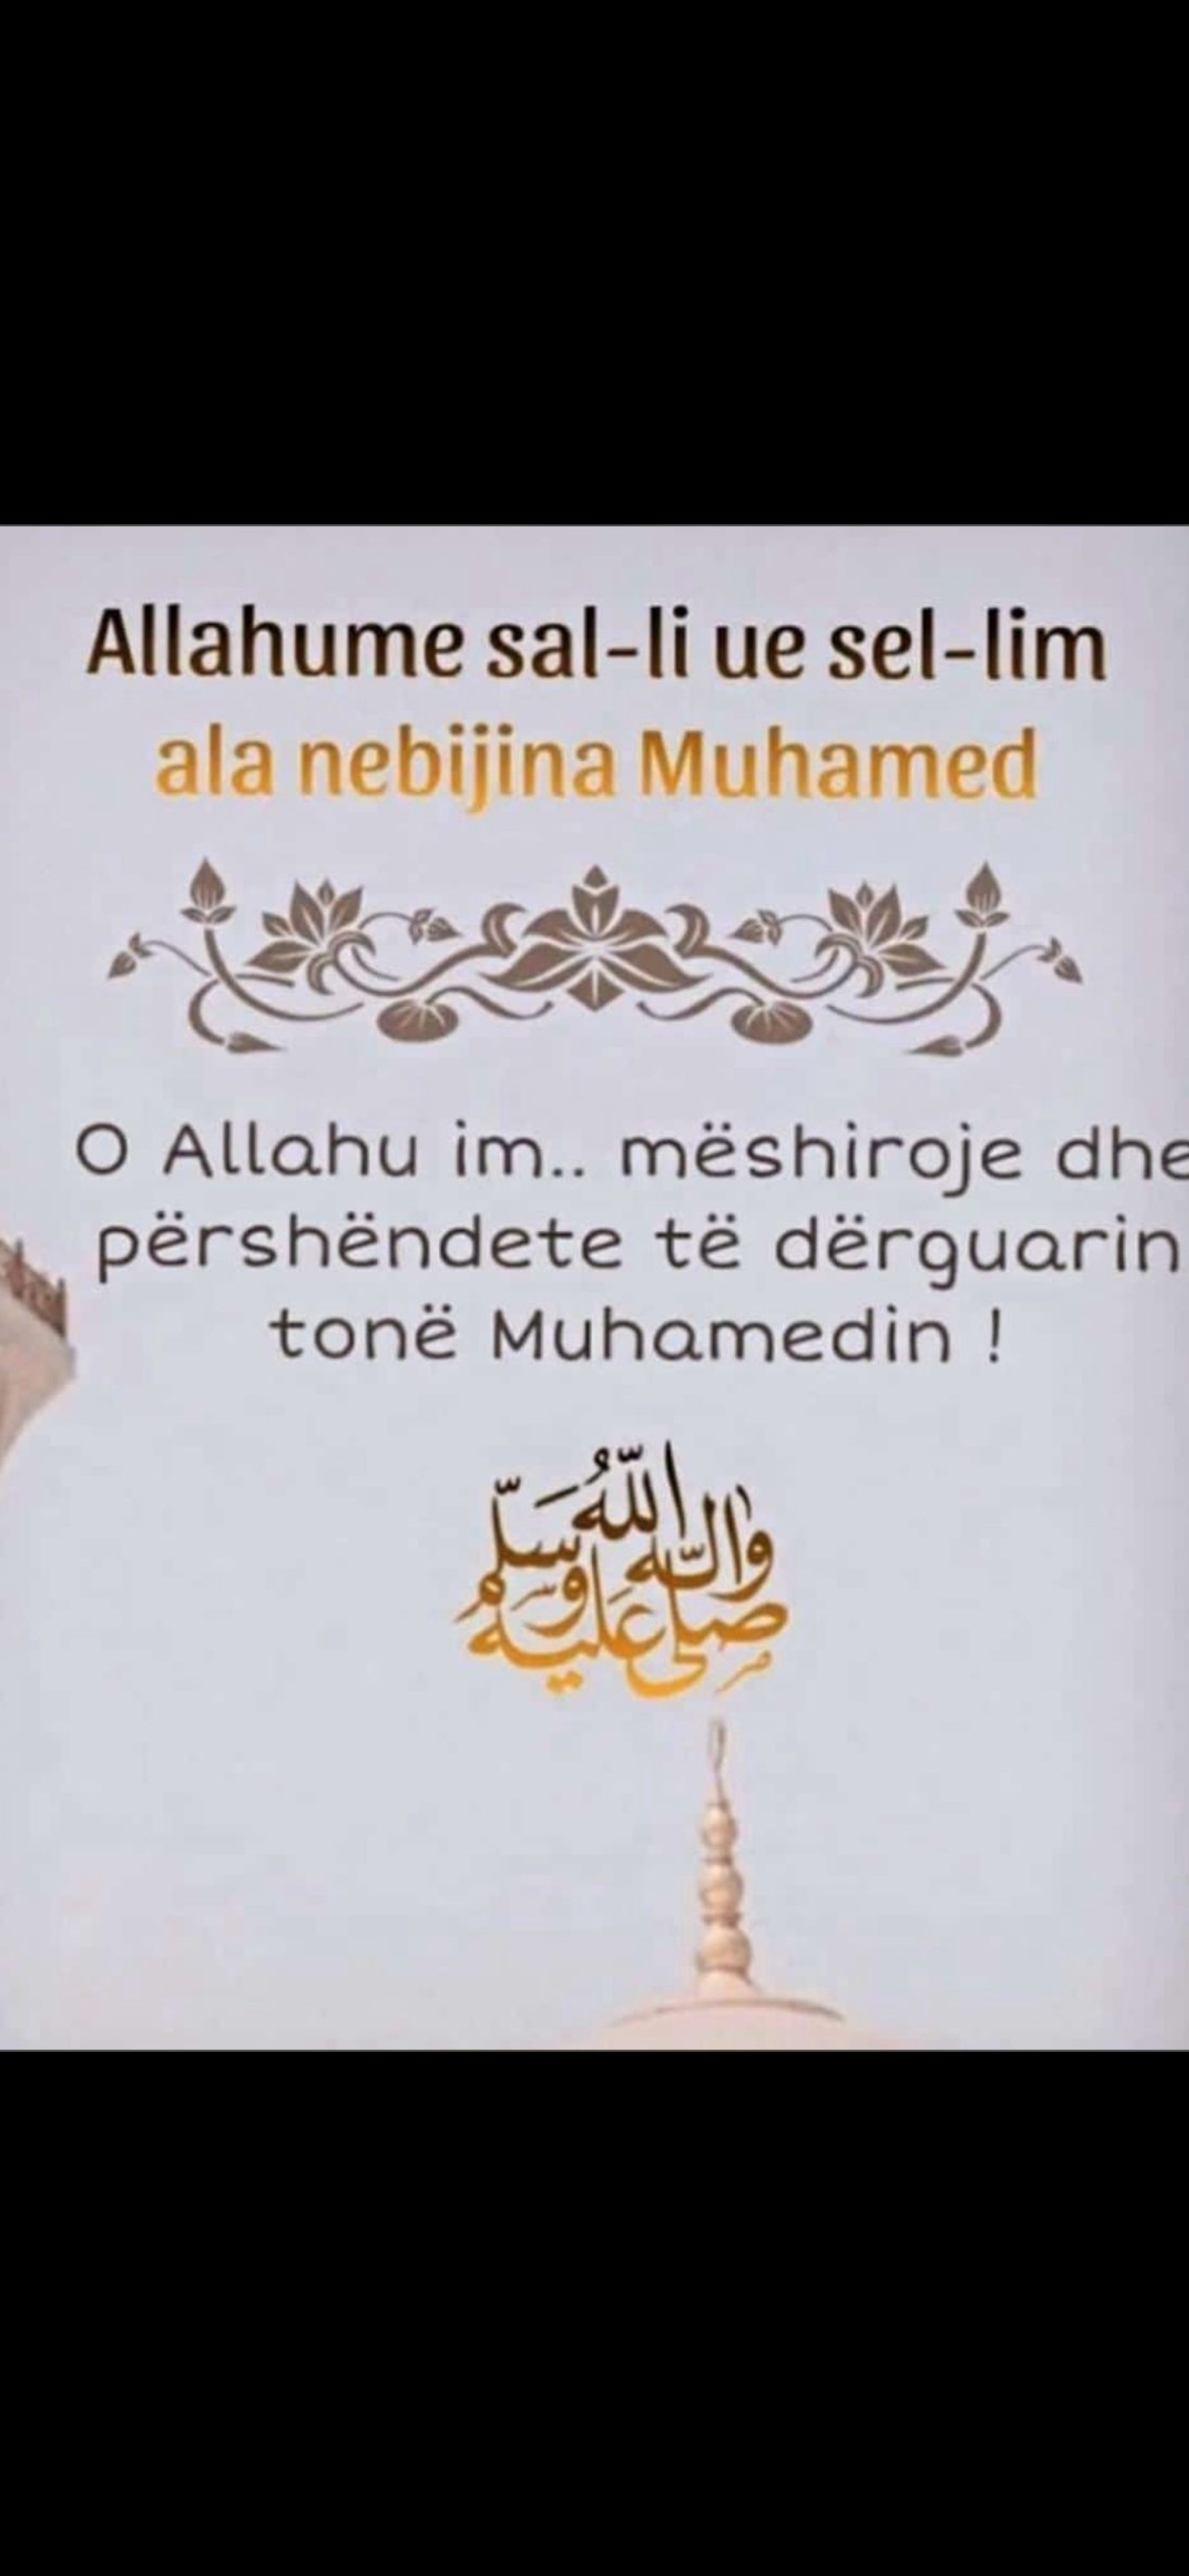 Allahume sal-li ue sel-lim
ala nebijina Muhamed
O Allahu im.. mëshiroje dhe
përshëndete të dërguarin
tonë Muhamedin !
صلى الله عليه وآله وسلم